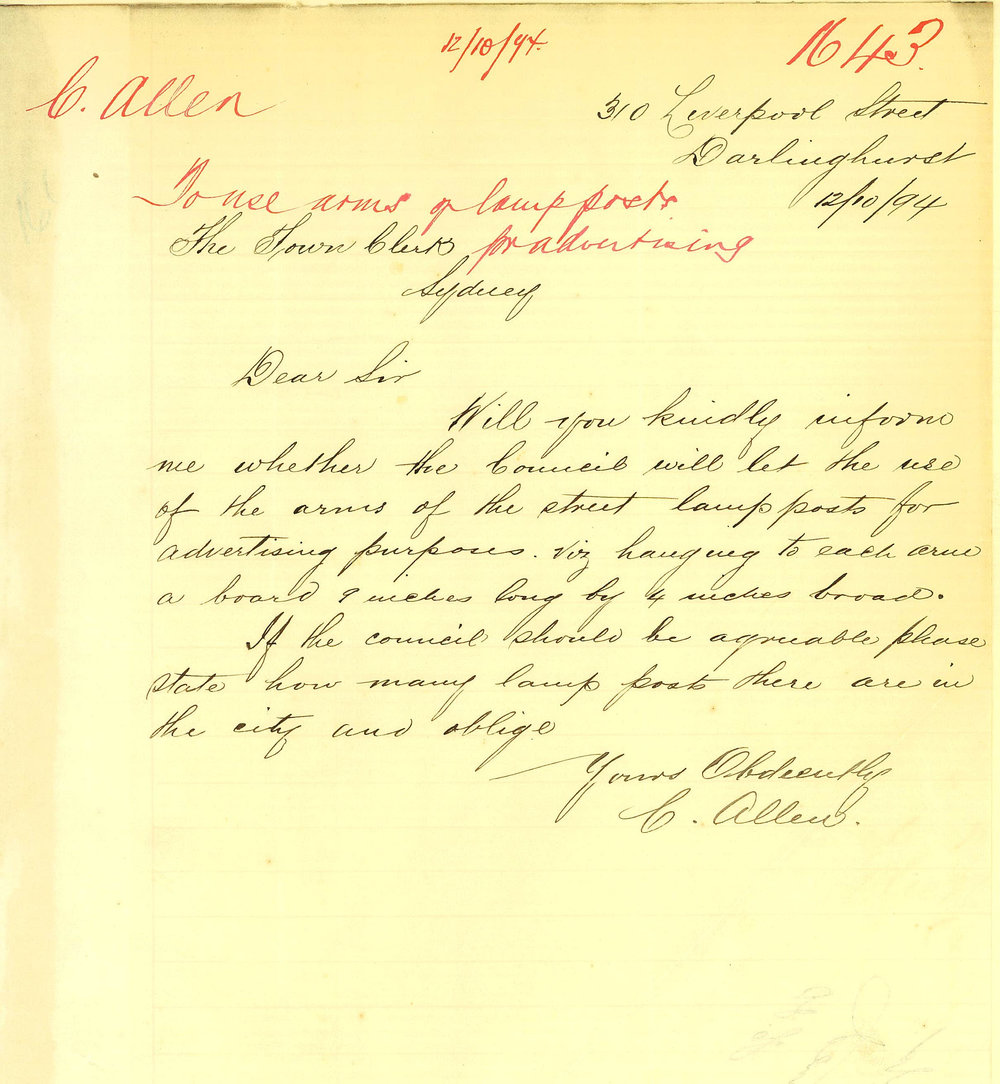 12/10/94.
1643.
C. Allen
310 Liverpool Street
Darlinghurst
12/10/94
To use arms of lamp posts
for advertising
The Town Clerk
Sydney
Dear Sir
Will you kindly inform
me whether the Council will let the use
of the arms of the street lamp posts for
advertising purposes. viz hanging to each arm
a board 9 inches long by 4 inches broad.
If the council should be agreeable please
state how many lamp posts there are in
the city and oblige
Yours Obdeently
C. Allen.